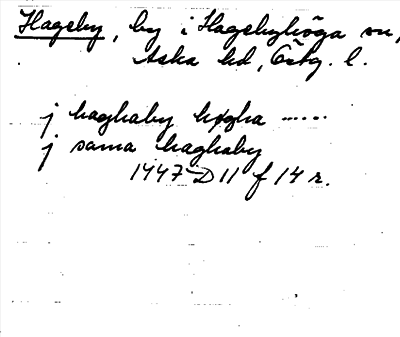 Hagsby, by i Hagebyhöga sn,
Aska hd, Östg. l.
j haghaby høgha ......
j sama haghaby
1447 D 11 f 14 r.